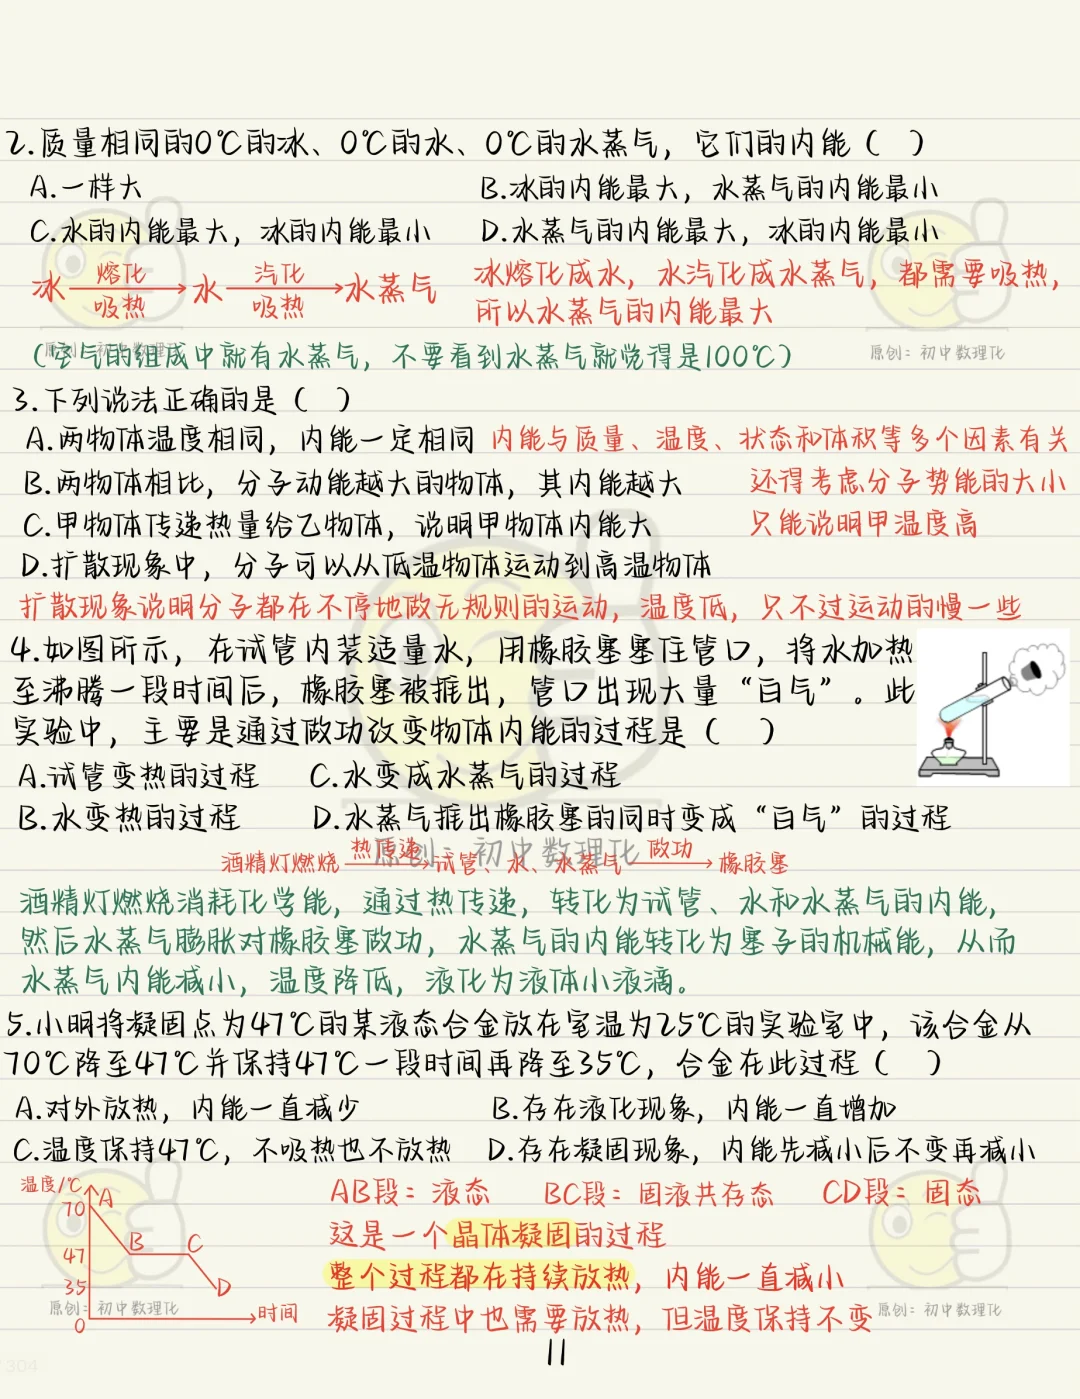 2.质量相同的0℃的冰、0℃的水、0℃的水蒸气，它们的内能（ ）
A.一样大 B.冰的内能最大，水蒸气的内能最小
C.水的内能最大，冰的内能最小 D.水蒸气的内能最大，冰的内能最小
冰 熔化 吸热 水 汽化 吸热 水蒸气
冰熔化成水，水汽化成水蒸气，都需要吸热，
所以水蒸气的内能最大
原创：初中数理化
（空气的组成中就有水蒸气，不要看到水蒸气就觉得是100℃）
原创：初中数理化
3.下列说法正确的是（ ）
A.两物体温度相同，内能一定相同 内能与质量、温度、状态和体积等多个因素有关
B.两物体相比，分子动能越大的物体，其内能越大 还得考虑分子势能的大小
C.甲物体传递热量给乙物体，说明甲物体内能大 只能说明甲温度高
D.扩散现象中，分子可以从低温物体运动到高温物体
扩散现象说明分子都在不停地做无规则的运动，温度低，只不过运动的慢一些
4.如图所示，在试管内装适量水，用橡胶塞塞住管口，将水加热
至沸腾一段时间后，橡胶塞被推出，管口出现大量“白气”。此
实验中，主要是通过做功改变物体内能的过程是（ ）
A.试管变热的过程 C.水变成水蒸气的过程
B.水变热的过程 D.水蒸气推出橡胶塞的同时变成“白气”的过程
原创：初中数理化
酒精灯燃烧 热传递 试管、水、水蒸气 做功 橡胶塞
酒精灯燃烧消耗化学能，通过热传递，转化为试管、水和水蒸气的内能，
然后水蒸气膨胀对橡胶塞做功，水蒸气的内能转化为塞子的机械能，从而
水蒸气内能减小，温度降低，液化为液体小液滴。
5.小明将凝固点为47℃的某液态合金放在室温为25℃的实验室中，该合金从
70℃降至47℃并保持47℃一段时间再降至35℃，合金在此过程（ ）
A.对外放热，内能一直减少 B.存在液化现象，内能一直增加
C.温度保持47℃，不吸热也不放热 D.存在凝固现象，内能先减小后不变再减小
温度/℃
70 A
B C
47
35 D
0 时间
原创：初中数理化
AB段：液态 BC段：固液共存态 CD段：固态
这是一个晶体凝固的过程
整个过程都在持续放热，内能一直减小
凝固过程中也需要放热，但温度保持不变
原创：初中数理化
11
304